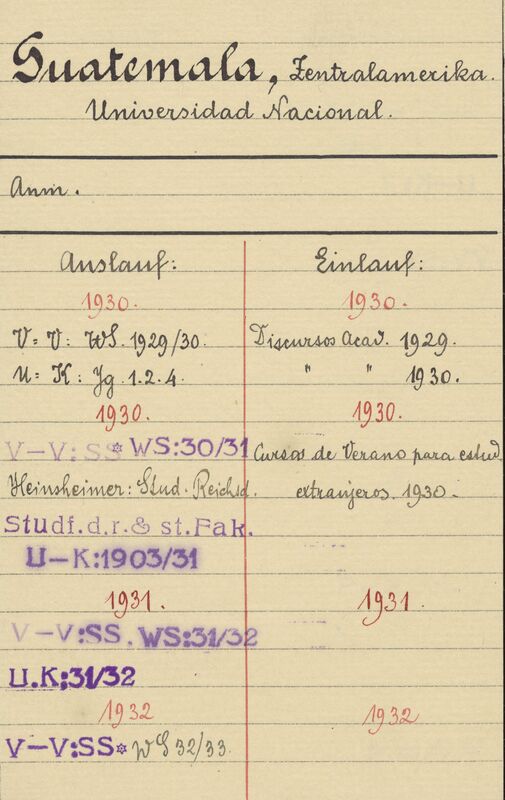 Guatemala, Zentralamerika.
Universidad Nacional.
Anm.
Auslauf:
1930.
V= V: WS. 1929/30.
U= K: Jg. 1.2.4.
1930.
V-V: SS* WS:30/31
Heinsheimer: Stud. Reichsd.
Studf.d.r.& st.Fak.
U-K:1903/31
1931.
V-V:SS. WS:31/32
U.K:31/32
1932
V-V:SS* WS 32/33.
Einlauf:
1930.
Discursos Acad. 1929.
" " 1930.
1930.
Cursos de Verano para estud.
extranjeros. 1930-
1931.
1932